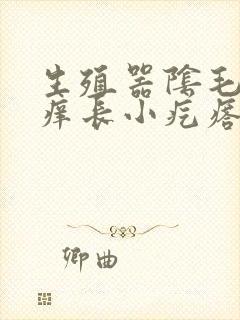 生殖器陰毛
痒長小疙瘩
卿曲